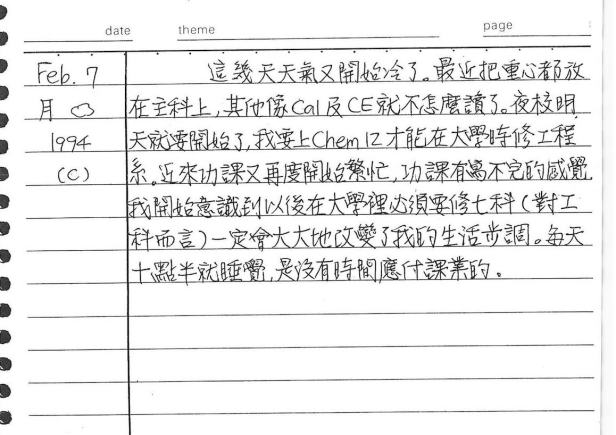 date theme page
Feb. 7 這幾天天氣又開始冷了。最近把重心都放
月 在主科上,其他像Cal及CE就不怎麼讀了。夜校明
1994 天就要開始了,我要上Chem 12才能在大學時修工程
(C) 系。近來功課又再度開始繁忙,功課有寫不完的感覺,
我開始意識到以後在大學裡必須要修七科(對工
科而言)一定會大大地改變了我的生活步調。每天
十點半就睡覺,是沒有時間應付課業的。